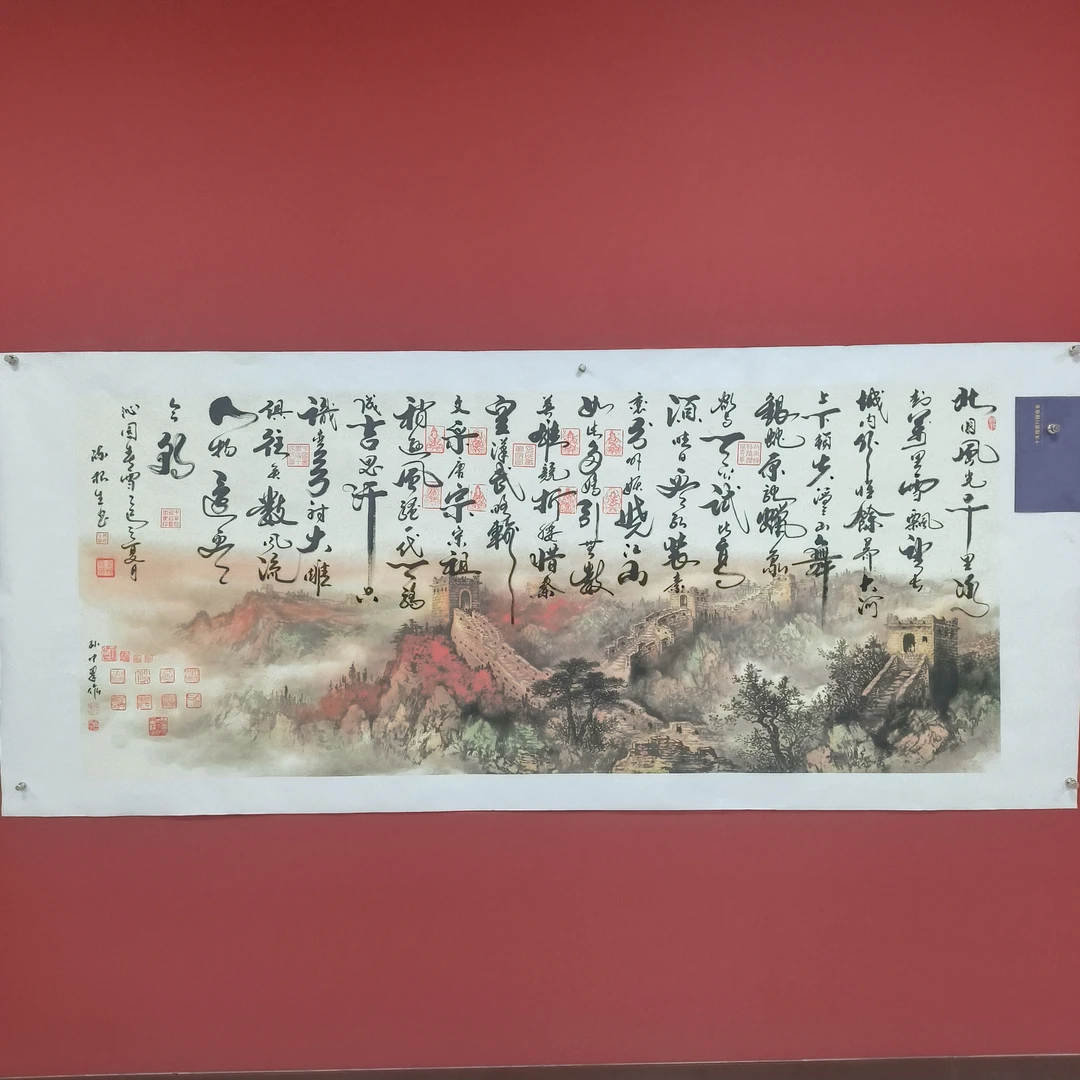 北国風光千里冰
封萬里雪飄望长
城内外惟餘莽大河
上下頓失滔滔山舞
銀蛇原馳蠟象
欲与天公试比高
须晴日看红裝素
裹分外妖娆江山
如此多嬌引無数
英雄競折腰惜秦
皇漢武略輸
文采唐宗宋祖
稍遜風骚一代天骄
成吉思汗只
識弯弓射大雕
俱往矣数風流
人物還看
今朝
沁园春雪乙巳夏月